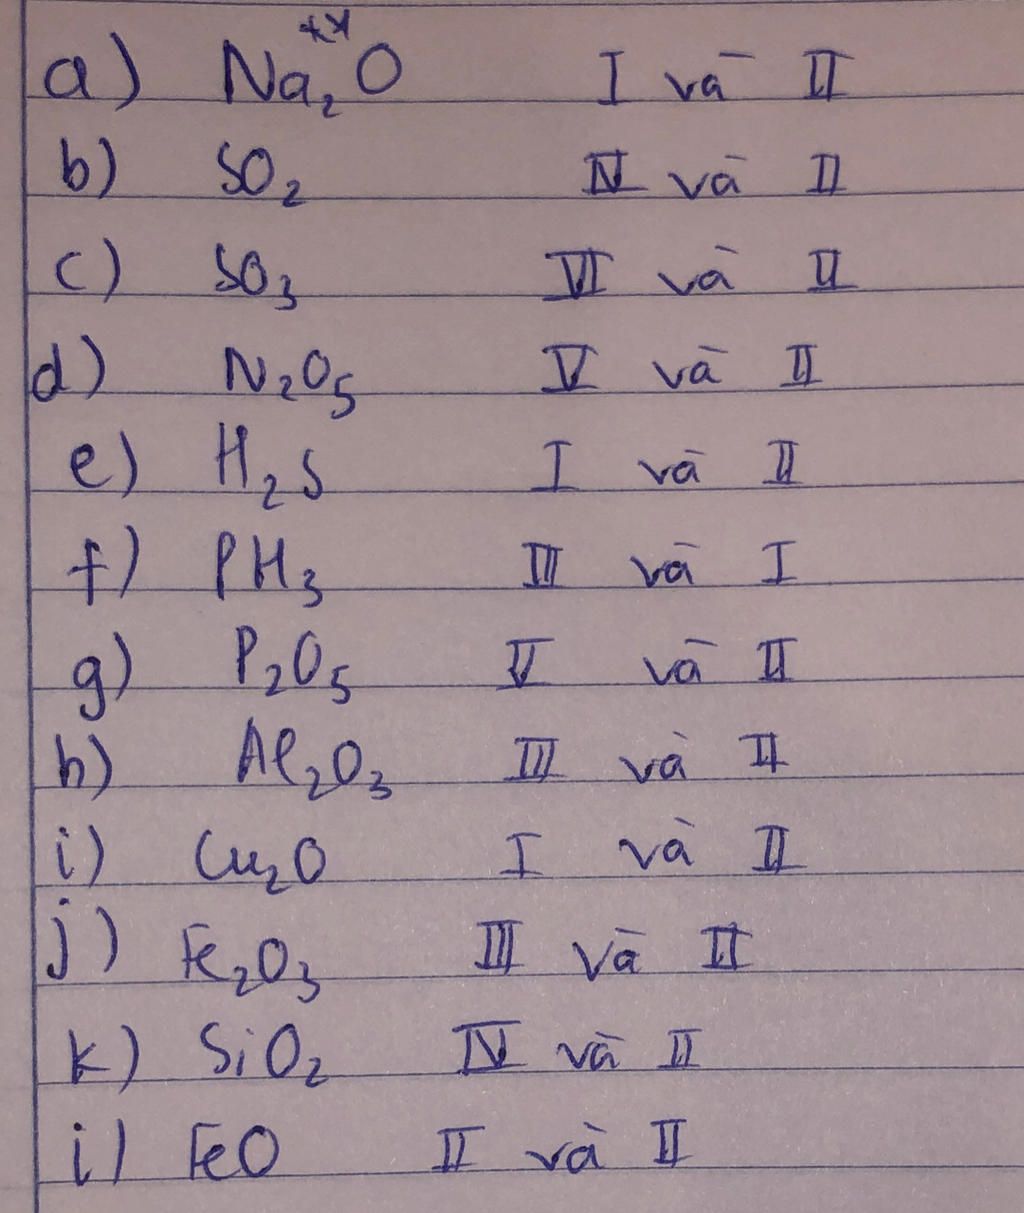 a) Na₂O I và II
b) SO₂ IV và II
c) SO₃ VI và II
d) N₂O₅ V và II
e) H₂S I và II
f) PH₃ III và I
g) P₂O₅ V và II
h) Al₂O₃ III và II
i) Cu₂O I và II
j) Fe₂O₃ III và II
k) SiO₂ IV và II
i) FeO II và II